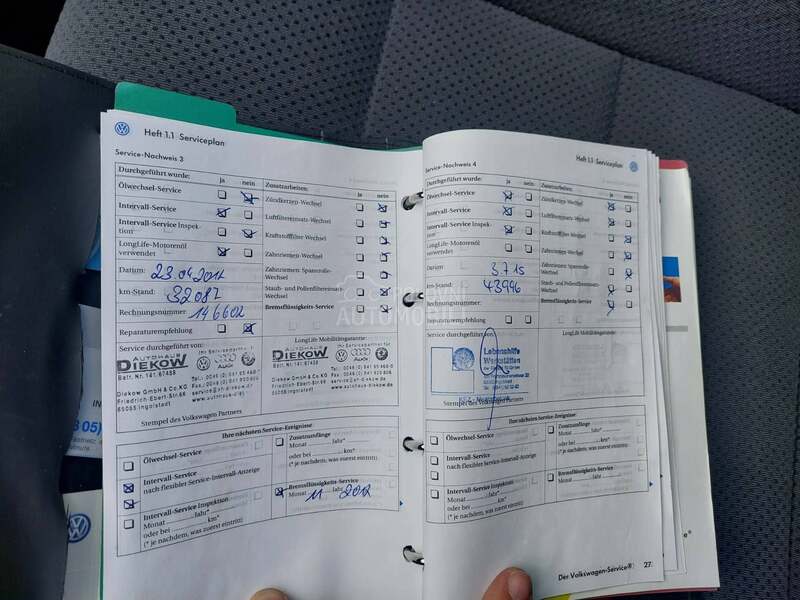 Heft 1.1 Serviceplan
Service-Nachweis 3
Durchgeführt wurde: ja nein
Ölwechsel-Service
Intervall-Service
Intervall-Service Inspek-
tion
LongLife-Motorenöl
verwendet
Datum: 23.04.2012
km-Stand: 32087
Rechnungsnummer: 146602
Reparaturempfehlung
Zusatzarbeiten: ja nein
Zündkerzen-Wechsel
Luftfiltereinsatz-Wechsel
Kraftstofffilter-Wechsel
Zahnriemen-Wechsel
Zahnriemen-Spannrolle-
Wechsel
Staub- und Pollenfiltereinsatz-
Wechsel
Bremsflüssigkeits-Service
Service durchgeführt von:
AUTOHAUS
DIEKOW
Betr. Nr. 141, 67458
Ihr Servicepartner für
Audi
Diekow GmbH & Co.KG
Friedrich-Ebert-Str.66
85055 Ingolstadt
LongLife Mobilitätsgarantie:
AUTOHAUS
DIEKOW
Betr. Nr. 141, 67458
Ihr Servicepartner für
Audi
Diekow GmbH & Co.KG
Friedrich-Ebert-Str.66
85055 Ingolstadt
www.autohaus-diekow.de
Stempel des Volkswagen Partners
Ihre nächsten Service-Ereignisse:
Ölwechsel-Service
Intervall-Service
nach flexibler Service-Intervall-Anzeige
Intervall-Service Inspektion
Monat ........ Jahr*
oder bei ........ km*
(* je nachdem, was zuerst eintritt)
Zusatzumfänge
Monat ........ Jahr*
oder bei ........ km*
(* je nachdem, was zuerst eintritt)
Bremsflüssigkeits-Service
Monat 11 Jahr 2012
Heft 1.1 Serviceplan
Service-Nachweis 4
Durchgeführt wurde: ja nein
Ölwechsel-Service
Intervall-Service
Intervall-Service Inspek-
tion
LongLife-Motorenöl
verwendet
Datum 3.7.15
km-Stand: 43996
Rechnungsnummer:
Reparaturempfehlung
Zusatzarbeiten: ja nein
Zündkerzen-Wechsel
Luftfiltereinsatz-Wechsel
Kraftstofffilter-Wechsel
Zahnriemen-Wechsel
Zahnriemen-Spannrolle-
Wechsel
Staub- und Pollenfiltereinsatz-
Wechsel
Bremsflüssigkeits-Service
Service durchgeführt von:
Lebenshilfe
Werkstätten
LongLife Mobilitätsgarantie:
Stempel des Volkswagen Partners
Ihre nächsten Service-Ereignisse:
Ölwechsel-Service
Intervall-Service
nach flexibler Service-Intervall-Anzeige
Intervall-Service Inspektion
Monat ........ Jahr*
oder bei ........ km*
(* je nachdem, was zuerst eintritt)
Zusatzumfänge
Monat ........ Jahr*
oder bei ........ km*
(* je nachdem, was zuerst eintritt)
Bremsflüssigkeits-Service
Monat ........ Jahr
Der Volkswagen-Service® 27